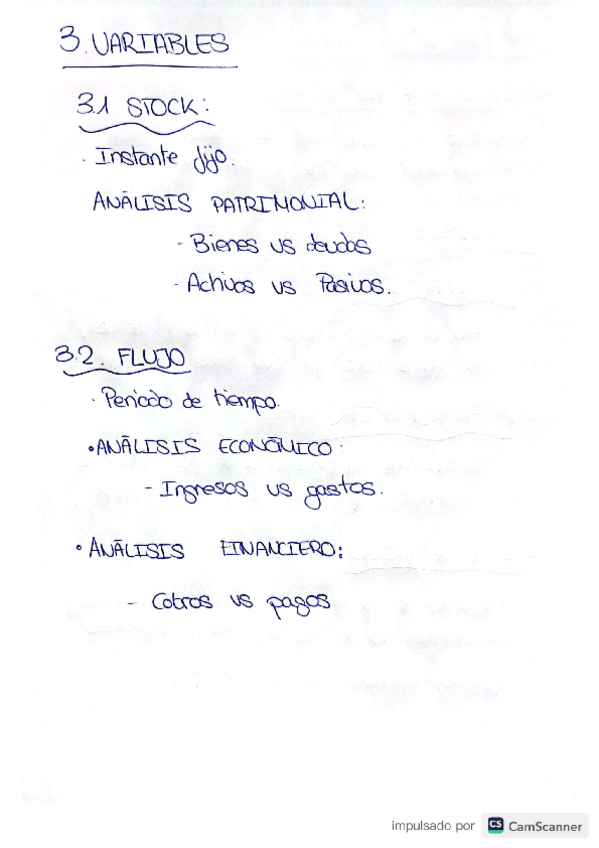 3. VARIABLES
3.1 STOCK:
· Instante fijo.
ANÁLISIS PATRIMONIAL:
- Bienes vs deudas
- Activos vs Pasivos.
3.2. FLUJO
· Periodo de tiempo.
• ANÁLISIS ECONÓMICO.
- Ingresos vs gastos.
• ANÁLISIS FINANCIERO:
- Cobros vs pagos
impulsado por CS CamScanner